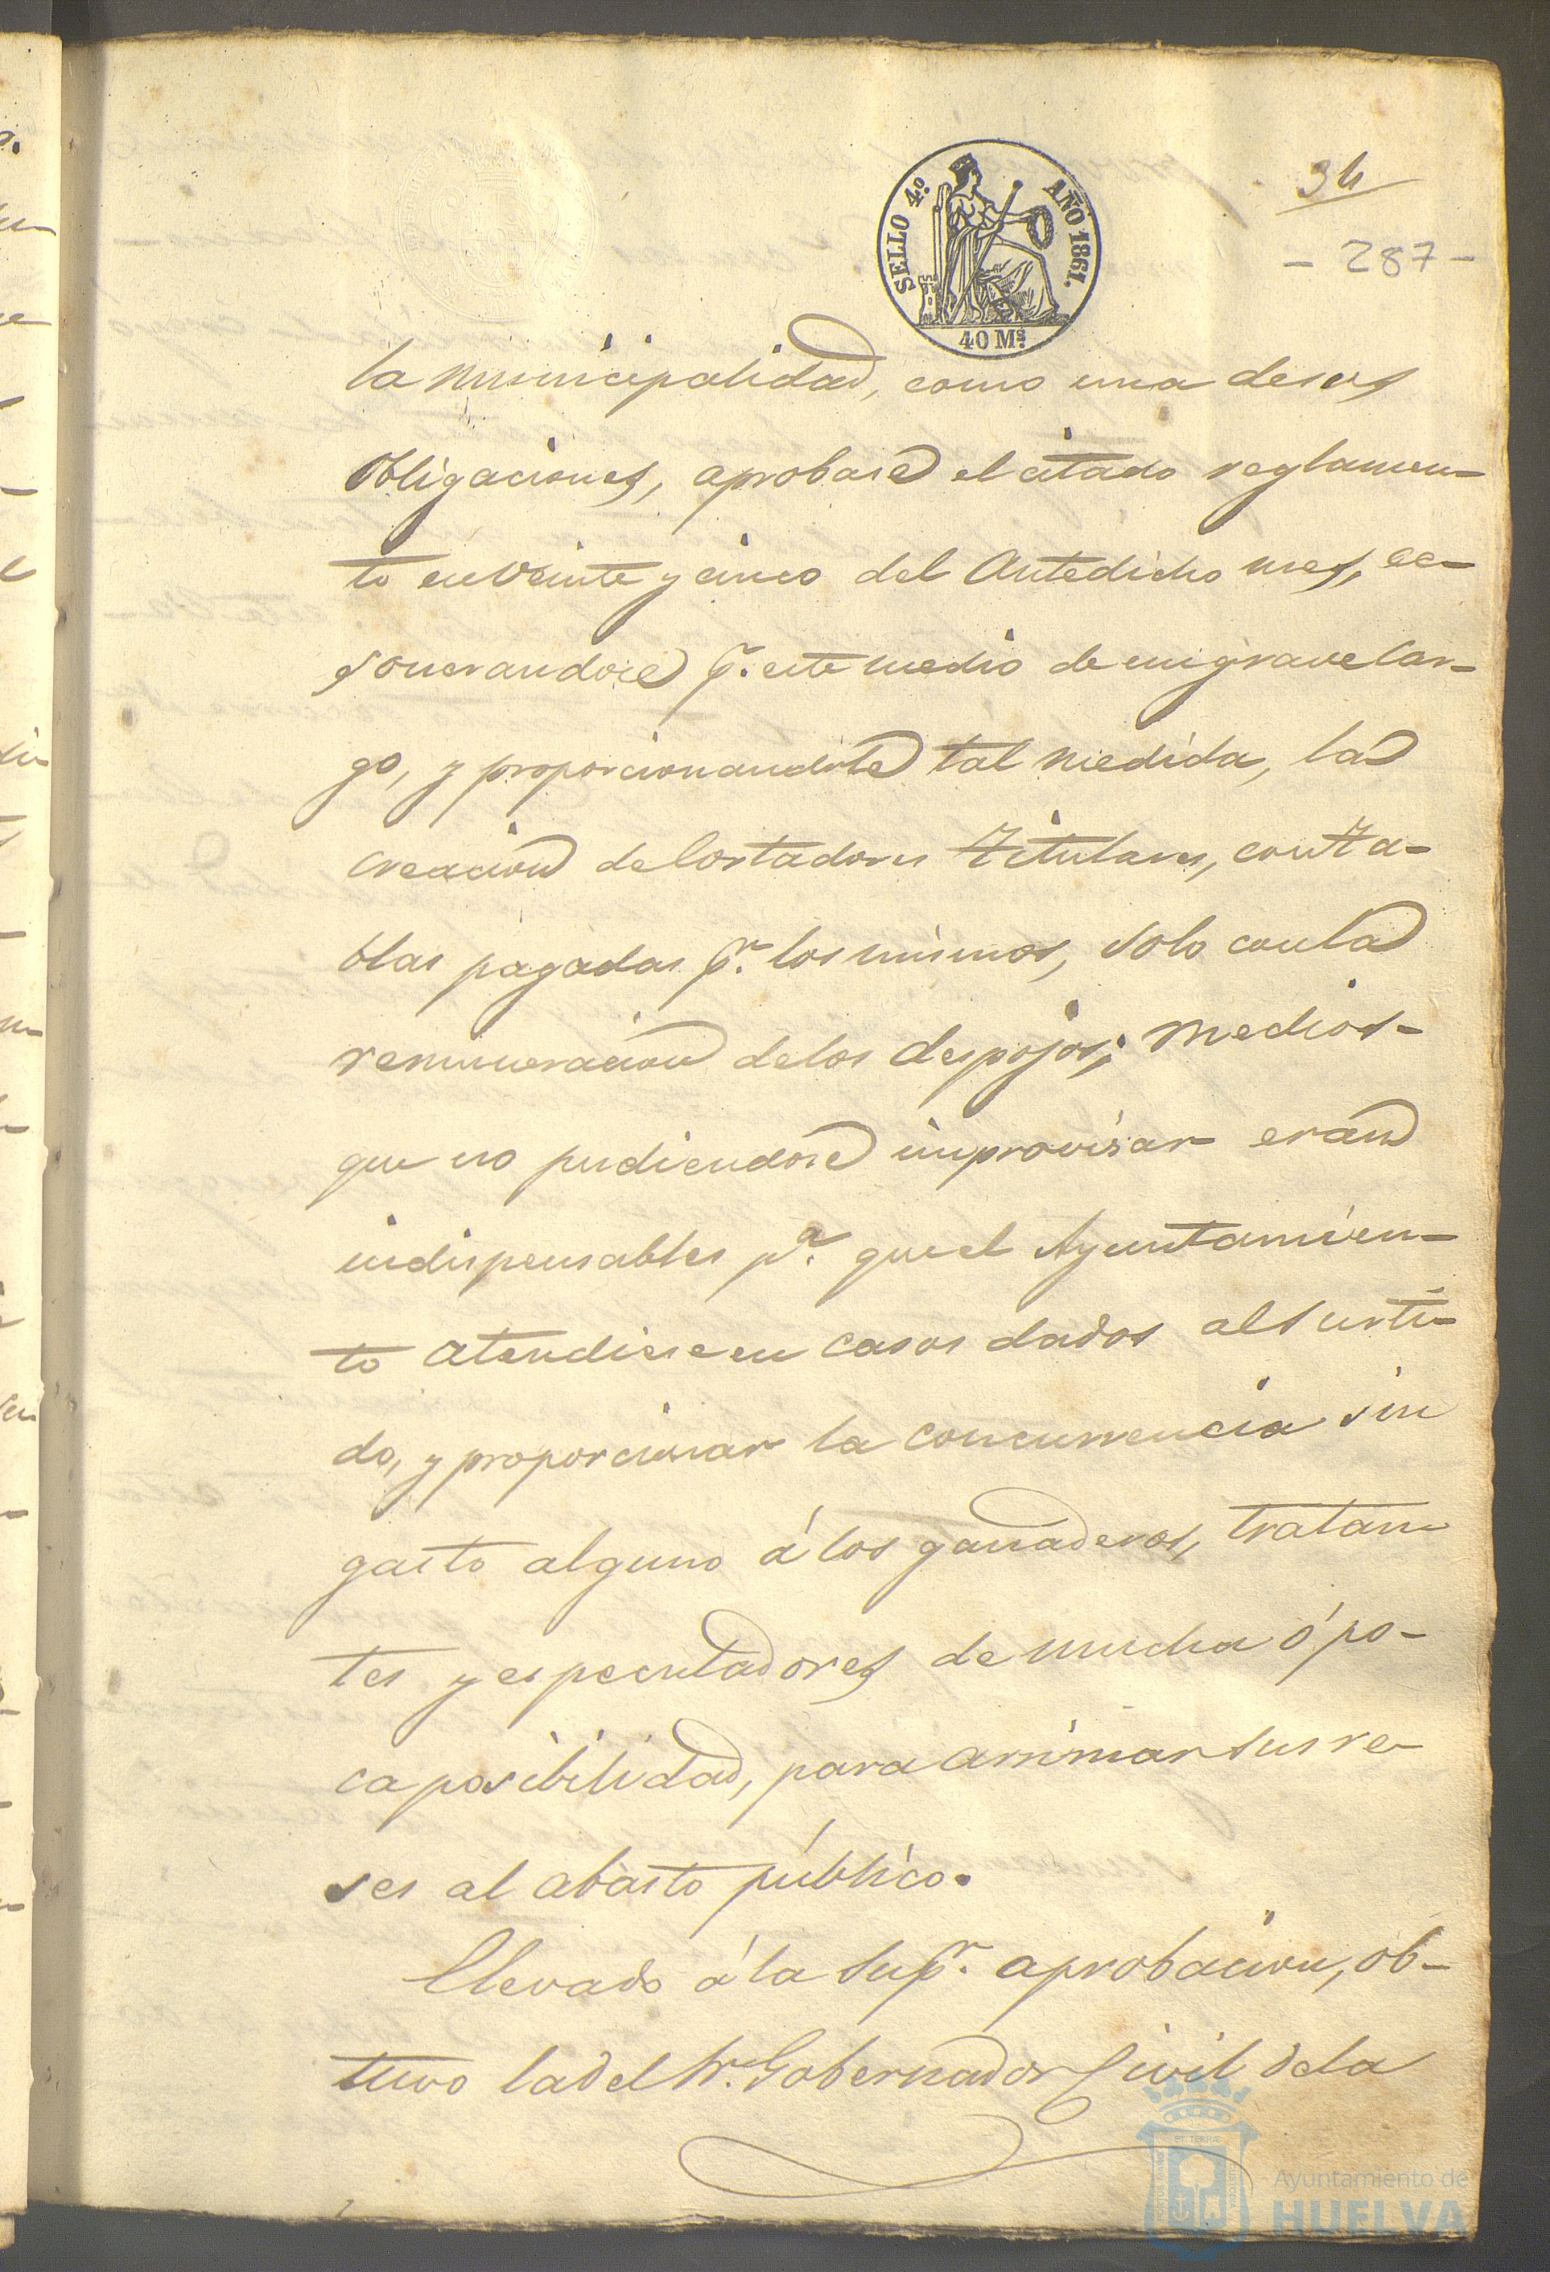 SELLO 4.º AÑO 1861.
40 Ms.
34
- 287 -
la municipalidad, como una desus
obligaciones, aprobose el citado reglamen-
to enveinte y cinco del Antedicho mes, ec-
sonerandose pr. este medio de un grave Car-
go, y proporcionandole tal medida, la
creacion de Cortadores titulares, con ta-
blas pagadas pr. los mismos, solo con la
remuneracion delos despojos; medios-
que no pudiendose improvisar eran
indispensables pa. que el Ayuntamien-
to atendiese en casos dados al surti-
do, y proporcionar la concurrencia sin
gasto alguno á los ganaderos, tratan
tes y especuladores de mucha ó po-
ca posibilidad, para arrimar sus re-
ses al abasto público.
Llevado á la Supr. aprobacion, ob-
tuvo la del Sr. Gobernador Civil de la
Ayuntamiento de
HUELVA